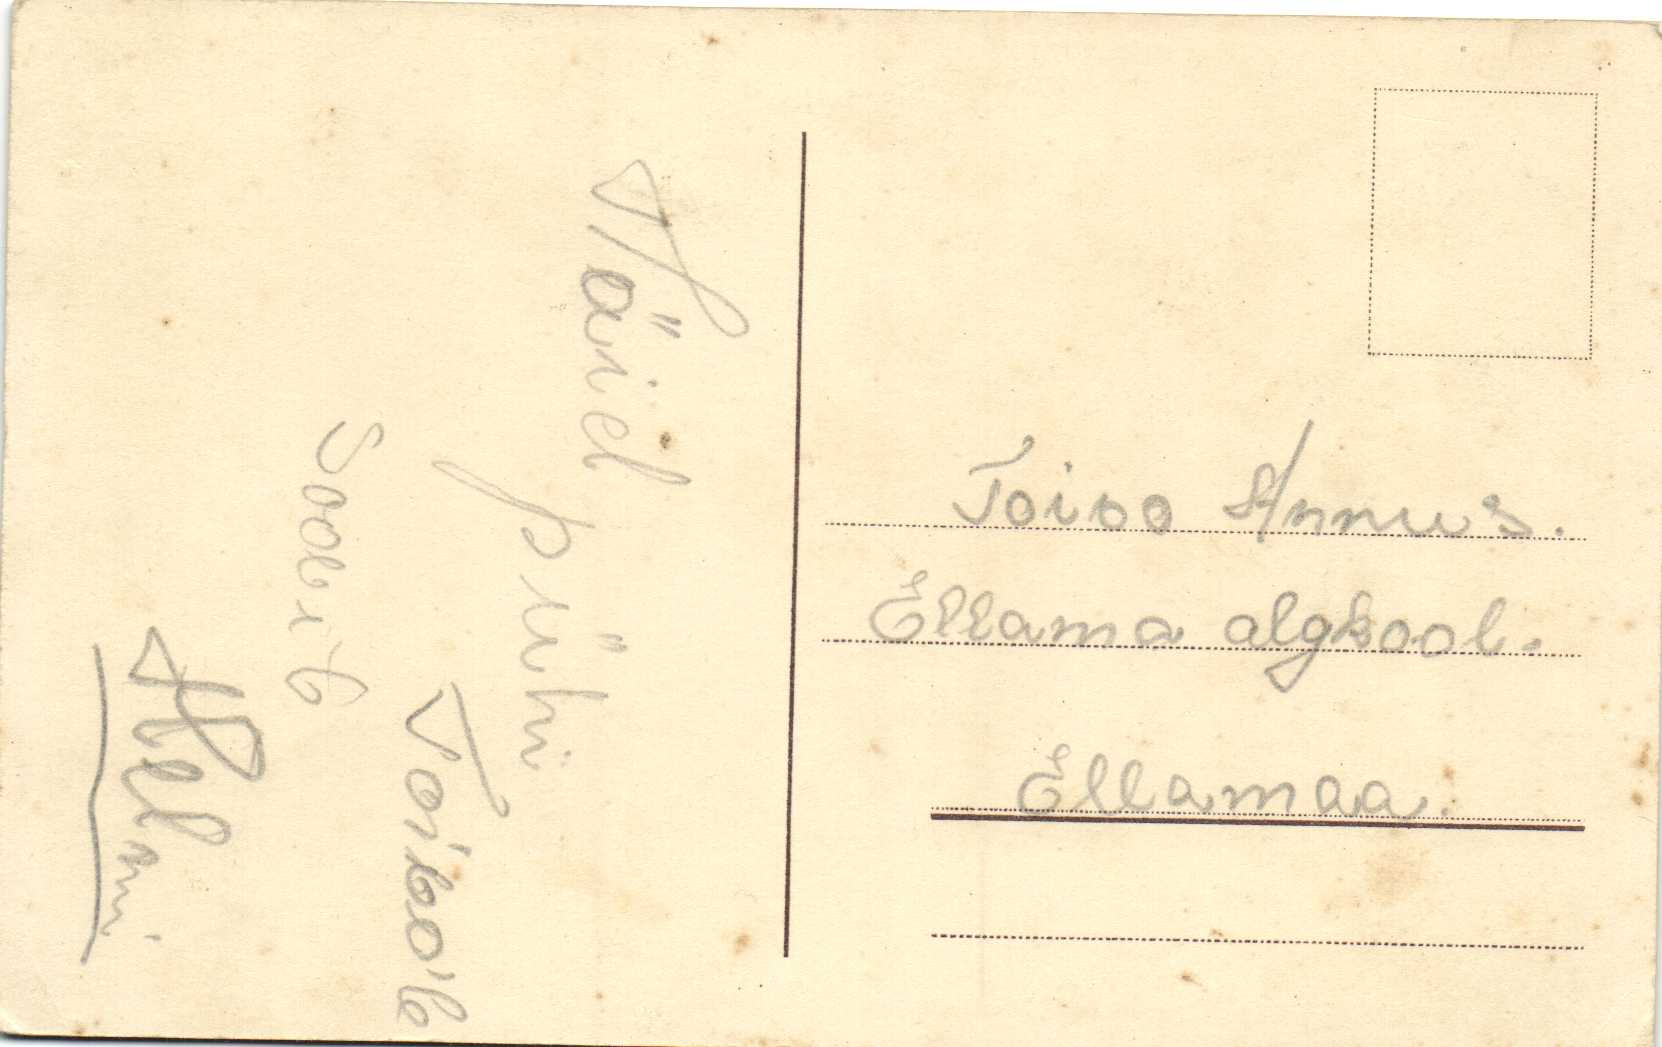 Häid
pühi
Toivole
soovib
Helmi
Toivo Annus.
Ellama algkool.
Ellamaa.